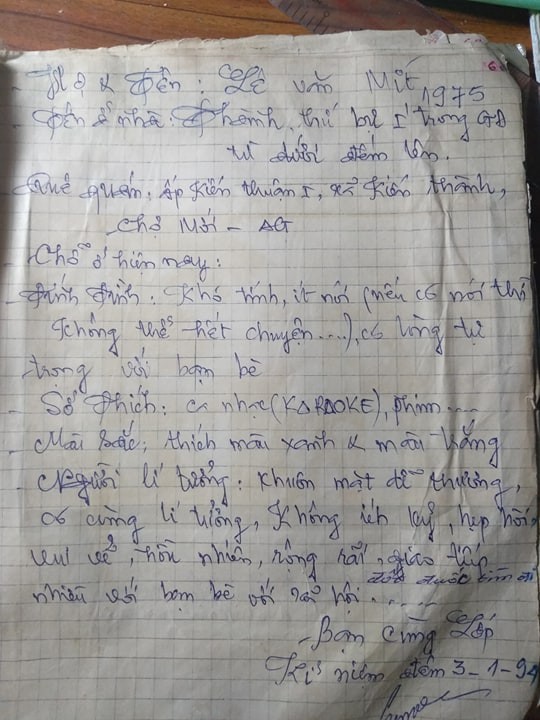 - Họ & Tên: Lê văn Mít 1975
- Tên ở nhà: Thành, thứ bự I trong GĐ
từ dưới đếm lên.
- Quê quán: ấp Kiến thuận I, xã Kiến thành,
Chợ Mới - AG
- Chỗ ở hiện nay:
- Tính tình: Khó tính, ít nói (nếu có nói thì
không thể hết chuyện....), có lòng tự
trọng với bạn bè
- Sở thích: ca nhạc (KARAOKE), phim ....
- Màu sắc: thích màu xanh & màu trắng
- Người lí tưởng: khuôn mặt dễ thương,
có cùng lí tưởng, không ích kỷ, hẹp hòi
vui vẻ, hồn nhiên, rộng rãi, giao tiếp
nhiều với bạn bè với xã hội .....
- Bạn cùng Lớp
Kỉ niệm đêm 3-1-94